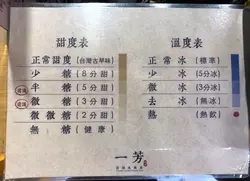 甜度表
正常甜度(台灣古早味)
少糖(8分甜)
半糖(5分甜)
微糖(3分甜)
微微糖(2分甜)
無糖(健康)
溫度表
正常冰(標準)
少冰(5分冰)
微冰(3分冰)
去冰(無冰)
熱(熱飲)
一芳